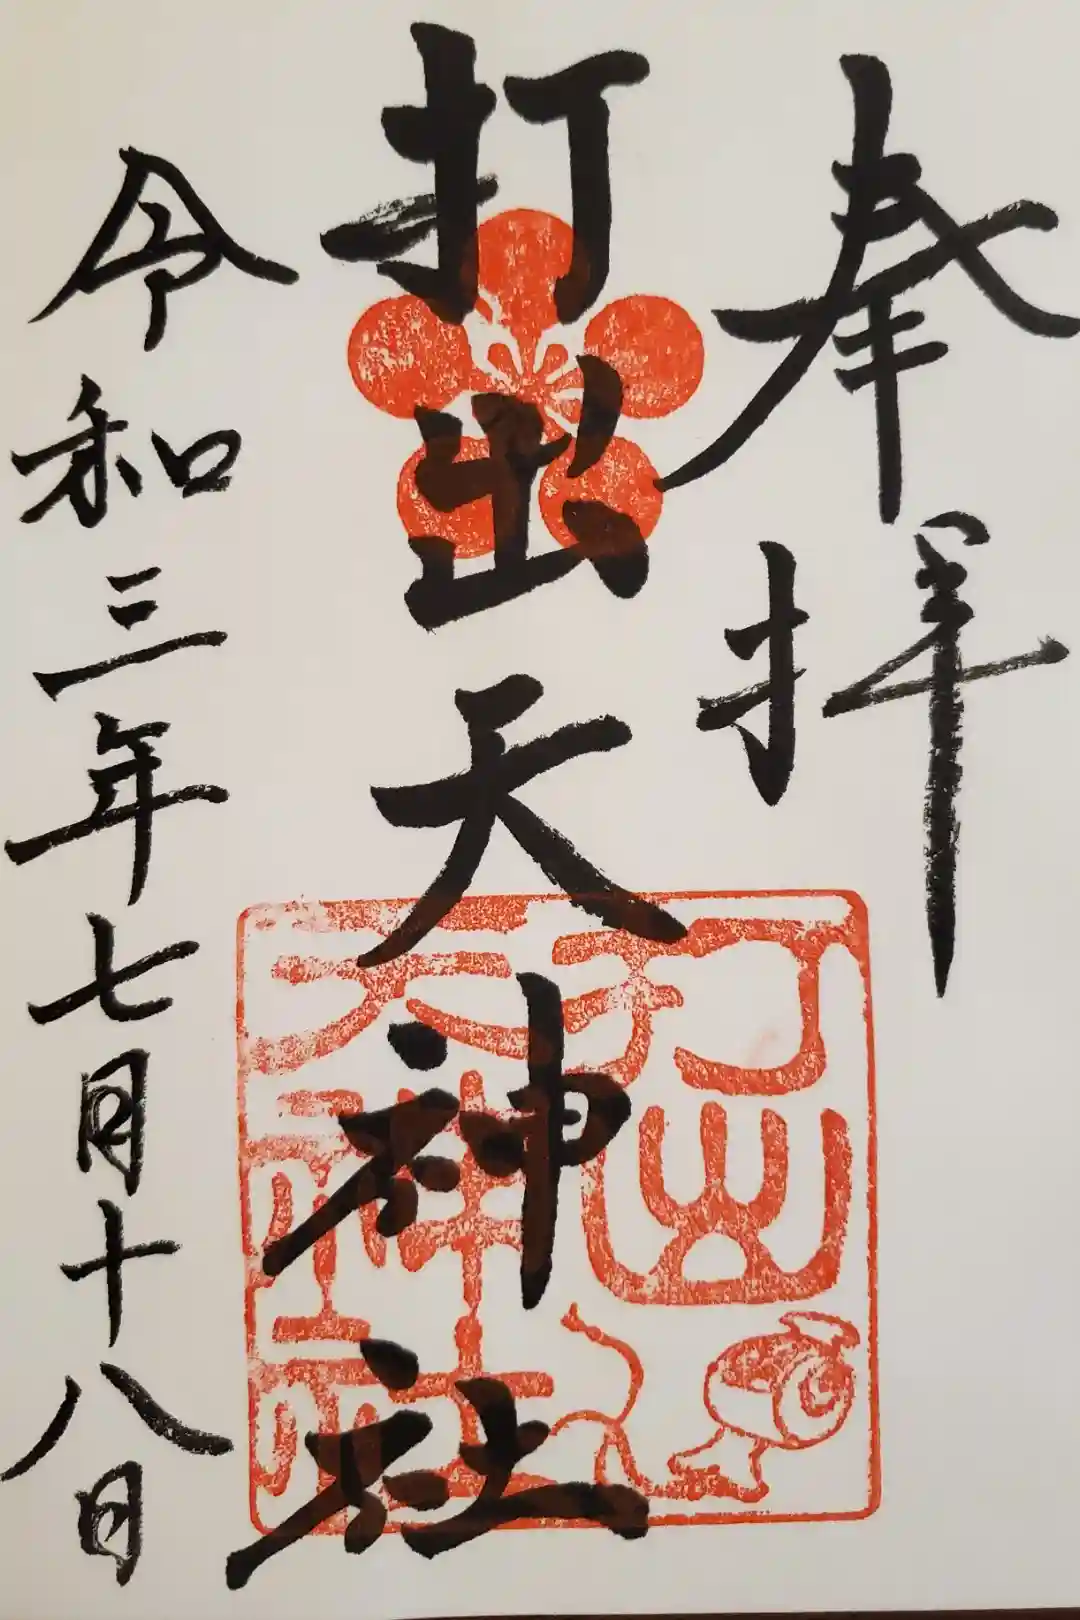 奉拝
打出天神社
令和三年七月十八日
打出
天神社